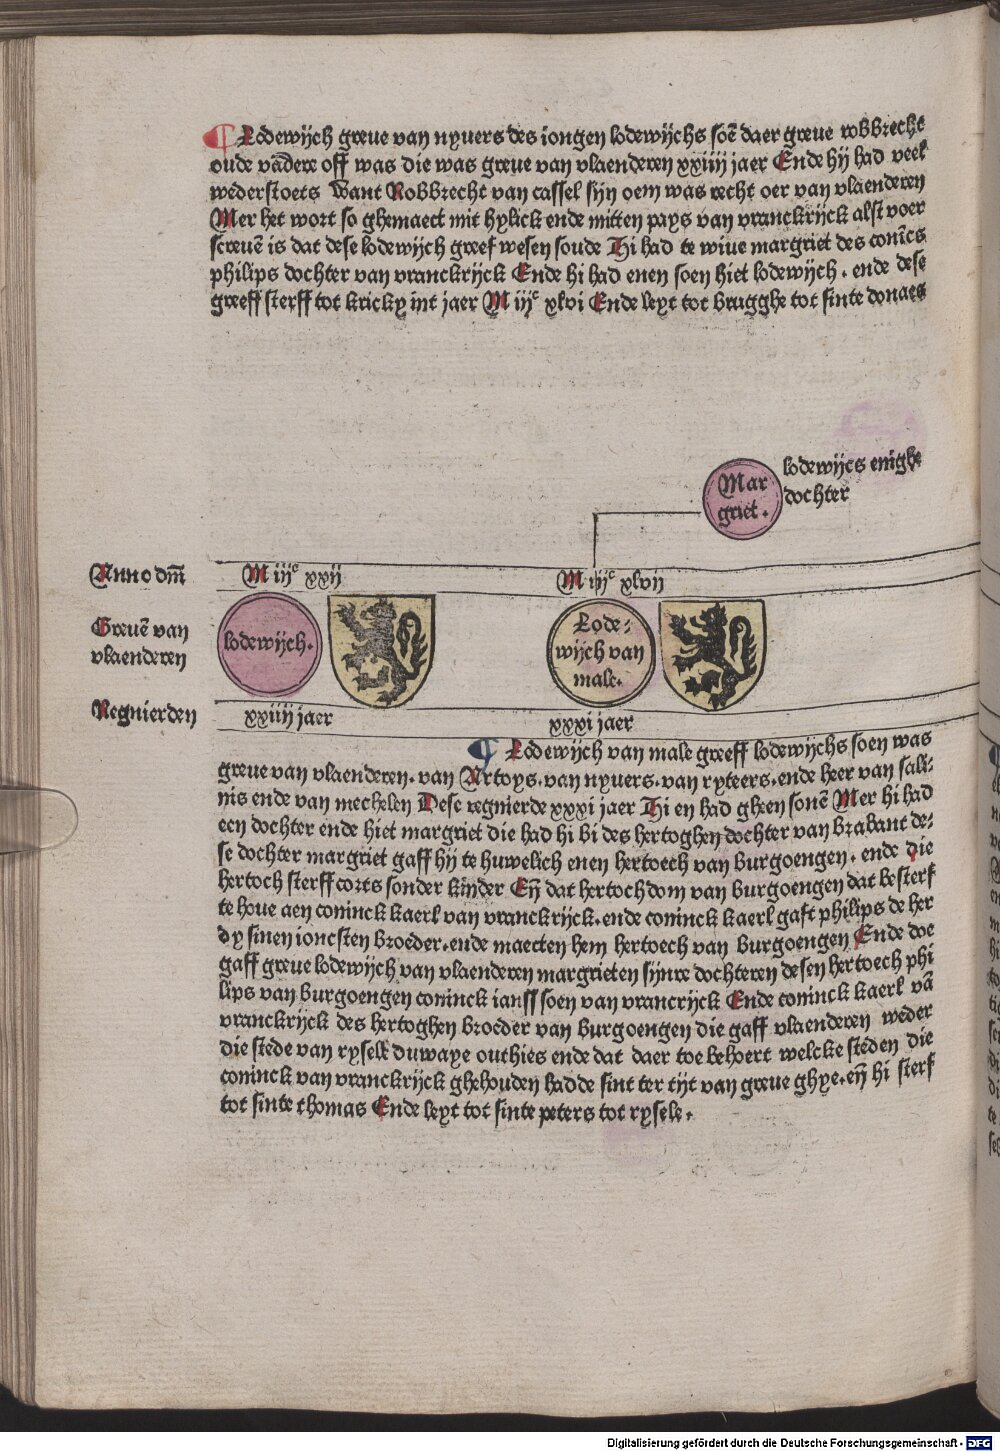 ¶ Lodewijch greue van nyuers des iongen lodewijchs soē daer greue robbrecht
oude vādere off was die was greue van vlaenderen xxiiij jaer Ende hij had veel
wederstoets Want Robbrecht van cassel sijn oem was recht oer van vlaenderen
Mer het wort so ghemaect mit hylick ende mitten pays van vranckrijck alst voer
screuē is dat dese lodewijch greef wesen soude Hi had te wiue margriet des conīcs
philips dochter van vranckrijck Ende hi had enen soen hiet lodewijch . ende dese
greeff sterff tot kricky int jaer M iijᶜ xlvi Ende leyt tot brugghe tot sinte donaes
Mar
griet .
lodewijcs enighe
dochter
Anno dm̄
M iijᶜ xxij
M iijᶜ xlvij
Greuē van
vlaenderen
lodewijch .
Lode-
wijch van
male .
Regnierden
xxiiij jaer
xxxi jaer
¶ Lodewijch van male greeff lodewijchs soen was
greue van vlaenderen . van Artoys . van nyuers . van ryteers . ende heer van sali-
nis ende van mechelen Dese regnierde xxxi jaer Hi en had gheen sonē Mer hi had
een dochter ende hiet margriet die had hi bi des hertoghen dochter van brabant de-
se dochter margriet gaff hij te huwelich enen hertoech van burgoengen . ende die
hertoch sterff corts sonder kinder Eñ dat hertochdom van burgoengen dat besterf
te houe aen coninck kaerl van vranckrijck . ende coninck kaerl gaft philips de her
dy sinen ioncsten broeder . ende maecten hem hertoech van burgoengen Ende doe
gaff greue lodewijch van vlaenderen margrieten sijnre dochteren desen hertoech phi
lips van burgoengen coninck ianss soen van vrancrijck Ende coninck kaerl vā
vranckrijck des hertoghen broeder van burgoengen die gaff vlaenderen weder
die stede van rysele duwaye outhies ende dat daer toe behoert welcke steden die
coninck van vranckrijck ghehouden hadde sint ter tijt van greue ghye . eñ hi sterf
tot sinte thomas Ende leyt tot sinte peters tot rysele .
Digitalisierung gefördert durch die Deutsche Forschungsgemeinschaft - DFG